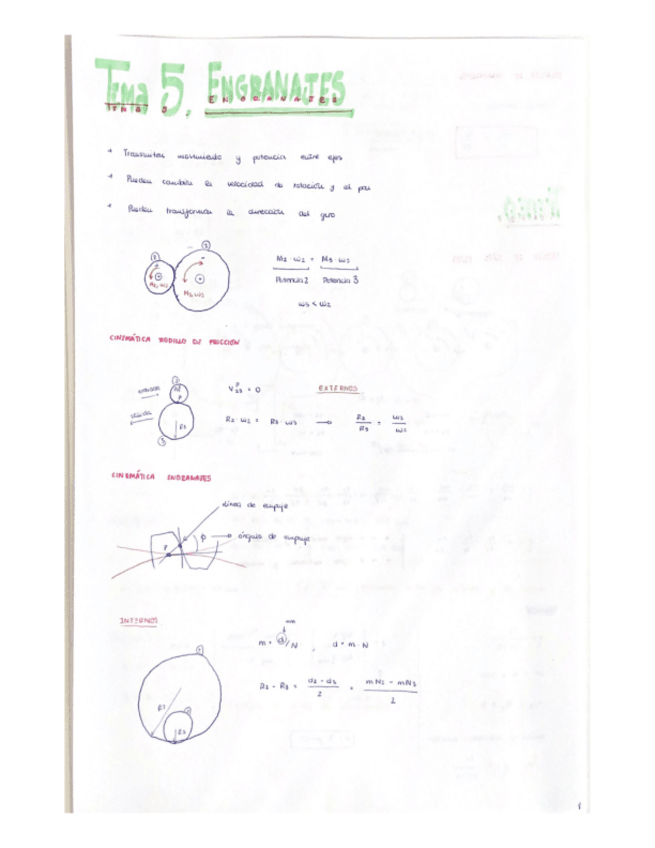 Tema 5. ENGRANAJES
TEMA 5. ENGRANAJES
* Transmiten movimiento y potencia entre ejes
* Pueden cambiar la velocidad de rotación y el par
* Pueden transformar la dirección del giro
M2 · ω2 = M3 · ω3
Potencia 2 Potencia 3
ω3 < ω2
2
3
M2, ω2
CINEMÁTICA RODILLO DE FRICCIÓN
EXTERNOS
2
R2
P
R3
3
R2 · ω2 = R3 · ω3 → R2/R3 = ω3/ω2
CINEMÁTICA ENGRANAJES
Línea de empuje
P
ϕ → ángulo de empuje
INTERNOS
mm
m = d/N , d = m · N
R2 - R3 = d2 - d3 / 2 = mN2 - mN3 / 2
R2
R3
1